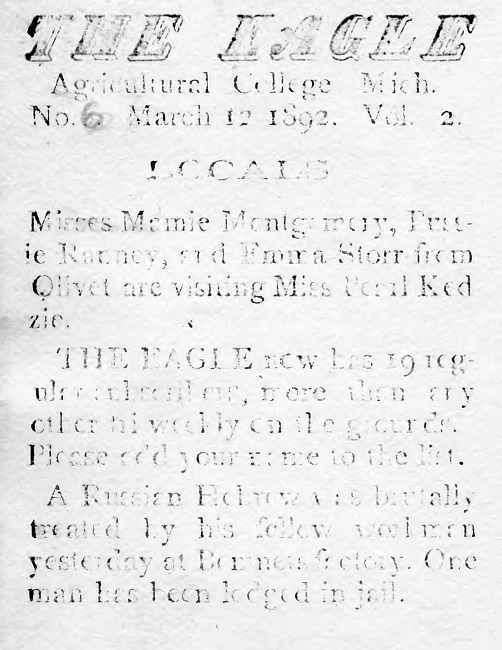 THE EAGLE
Agricultural College Mich.
No. 6 March 12 1892. Vol. 2.
LOCALS
Misses Mamie Montgomery,
ie Ranney, and Emma Storr from
Olivet are visiting Miss Ked
zie.
THE EAGLE now has 19 reg-
ular subscribers, more than any
other tri weekly on the grounds.
Please add your name to the list.
A Russian Hebrew was brutally
treated by his fellow workman
yesterday at factory. One
man has been lodged in jail.